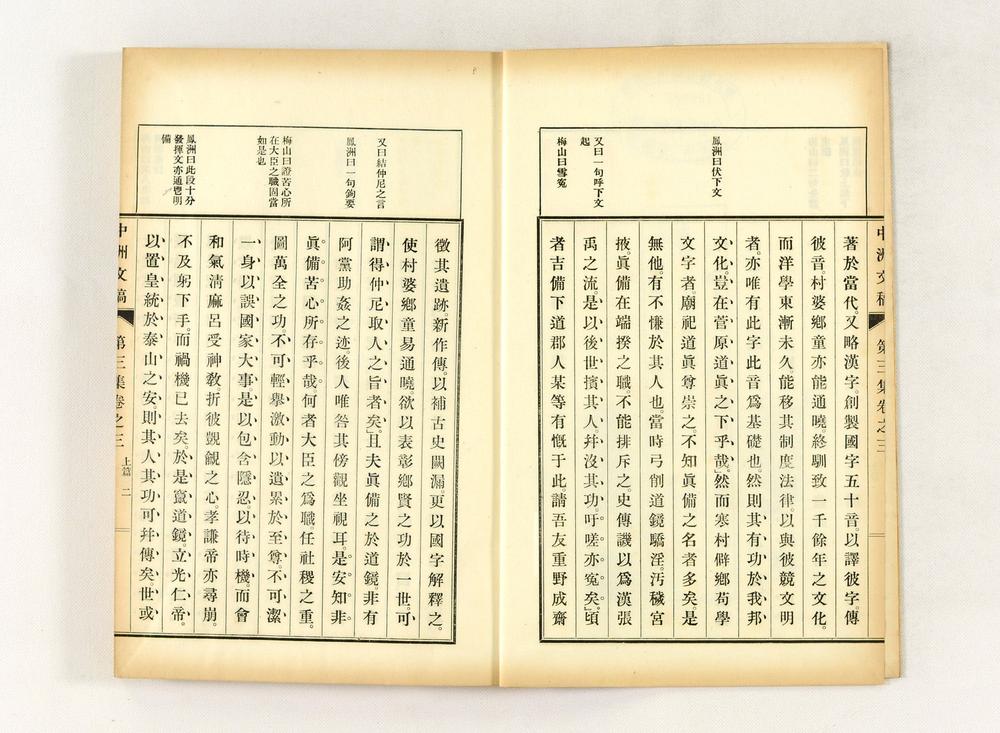 鳳洲曰伏下文
又曰一句呼下文
起
梅山曰雪寃
著於當代。又略漢字創製國字五十音。以譯彼字。傳
彼音村婆鄉童亦能通曉。終馴致一千餘年之文化。
而洋學東漸未久。能移其制度法律。以與彼競文明
者。亦唯有此字此音爲基礎也。然則其有功於我邦
文化。豈在菅原道眞之下乎哉。」然而寒村僻鄉苟學
文字者。廟祀道眞尊崇之。不知眞備之名者多矣。是
無他。有不慊於其人也。當時弓削道鏡驕淫。汚穢宮
掖。眞備在端揆之職不能排斥之。史傳譏以爲漢張
禹之流。是以後世擯其人。幷沒其功。吁嗟亦寃矣。」頃
者吉備下道郡人某等有慨于此請吾友重野成齋
中洲文稿
第三集卷之三
又曰結仲尼之言
鳳洲曰一句鉤要
梅山曰證苦心所
在大臣之職固當
如是也
鳳洲曰此段十分
發揮文亦通鬯明
備
徵其遺跡。新作傳。以補古史闕漏。更以國字解釋之。
使村婆鄉童易通曉欲以表彰鄉賢之功於一世。可
謂得仲尼取人之旨者矣。」且夫眞備之於道鏡非有
阿黨助姦之迹後人唯咎其傍觀坐視耳。是安知非
眞備苦心所存乎哉。何者大臣之爲職。任社稷之重。
圖萬全之功。不可輕舉激動以遺累於至尊。不可潔
一身以誤國家大事。是以包含隱忍。以待時機。而會
和氣淸麻呂受神敎。折彼覬覦之心。孝謙帝亦尋崩。
不及躬下手。而禍機已去矣。於是竄道鏡。立光仁帝。
以置皇統於泰山之安則其人其功可幷傳矣。世或
中洲文稿
第三集卷之三
上篇
二